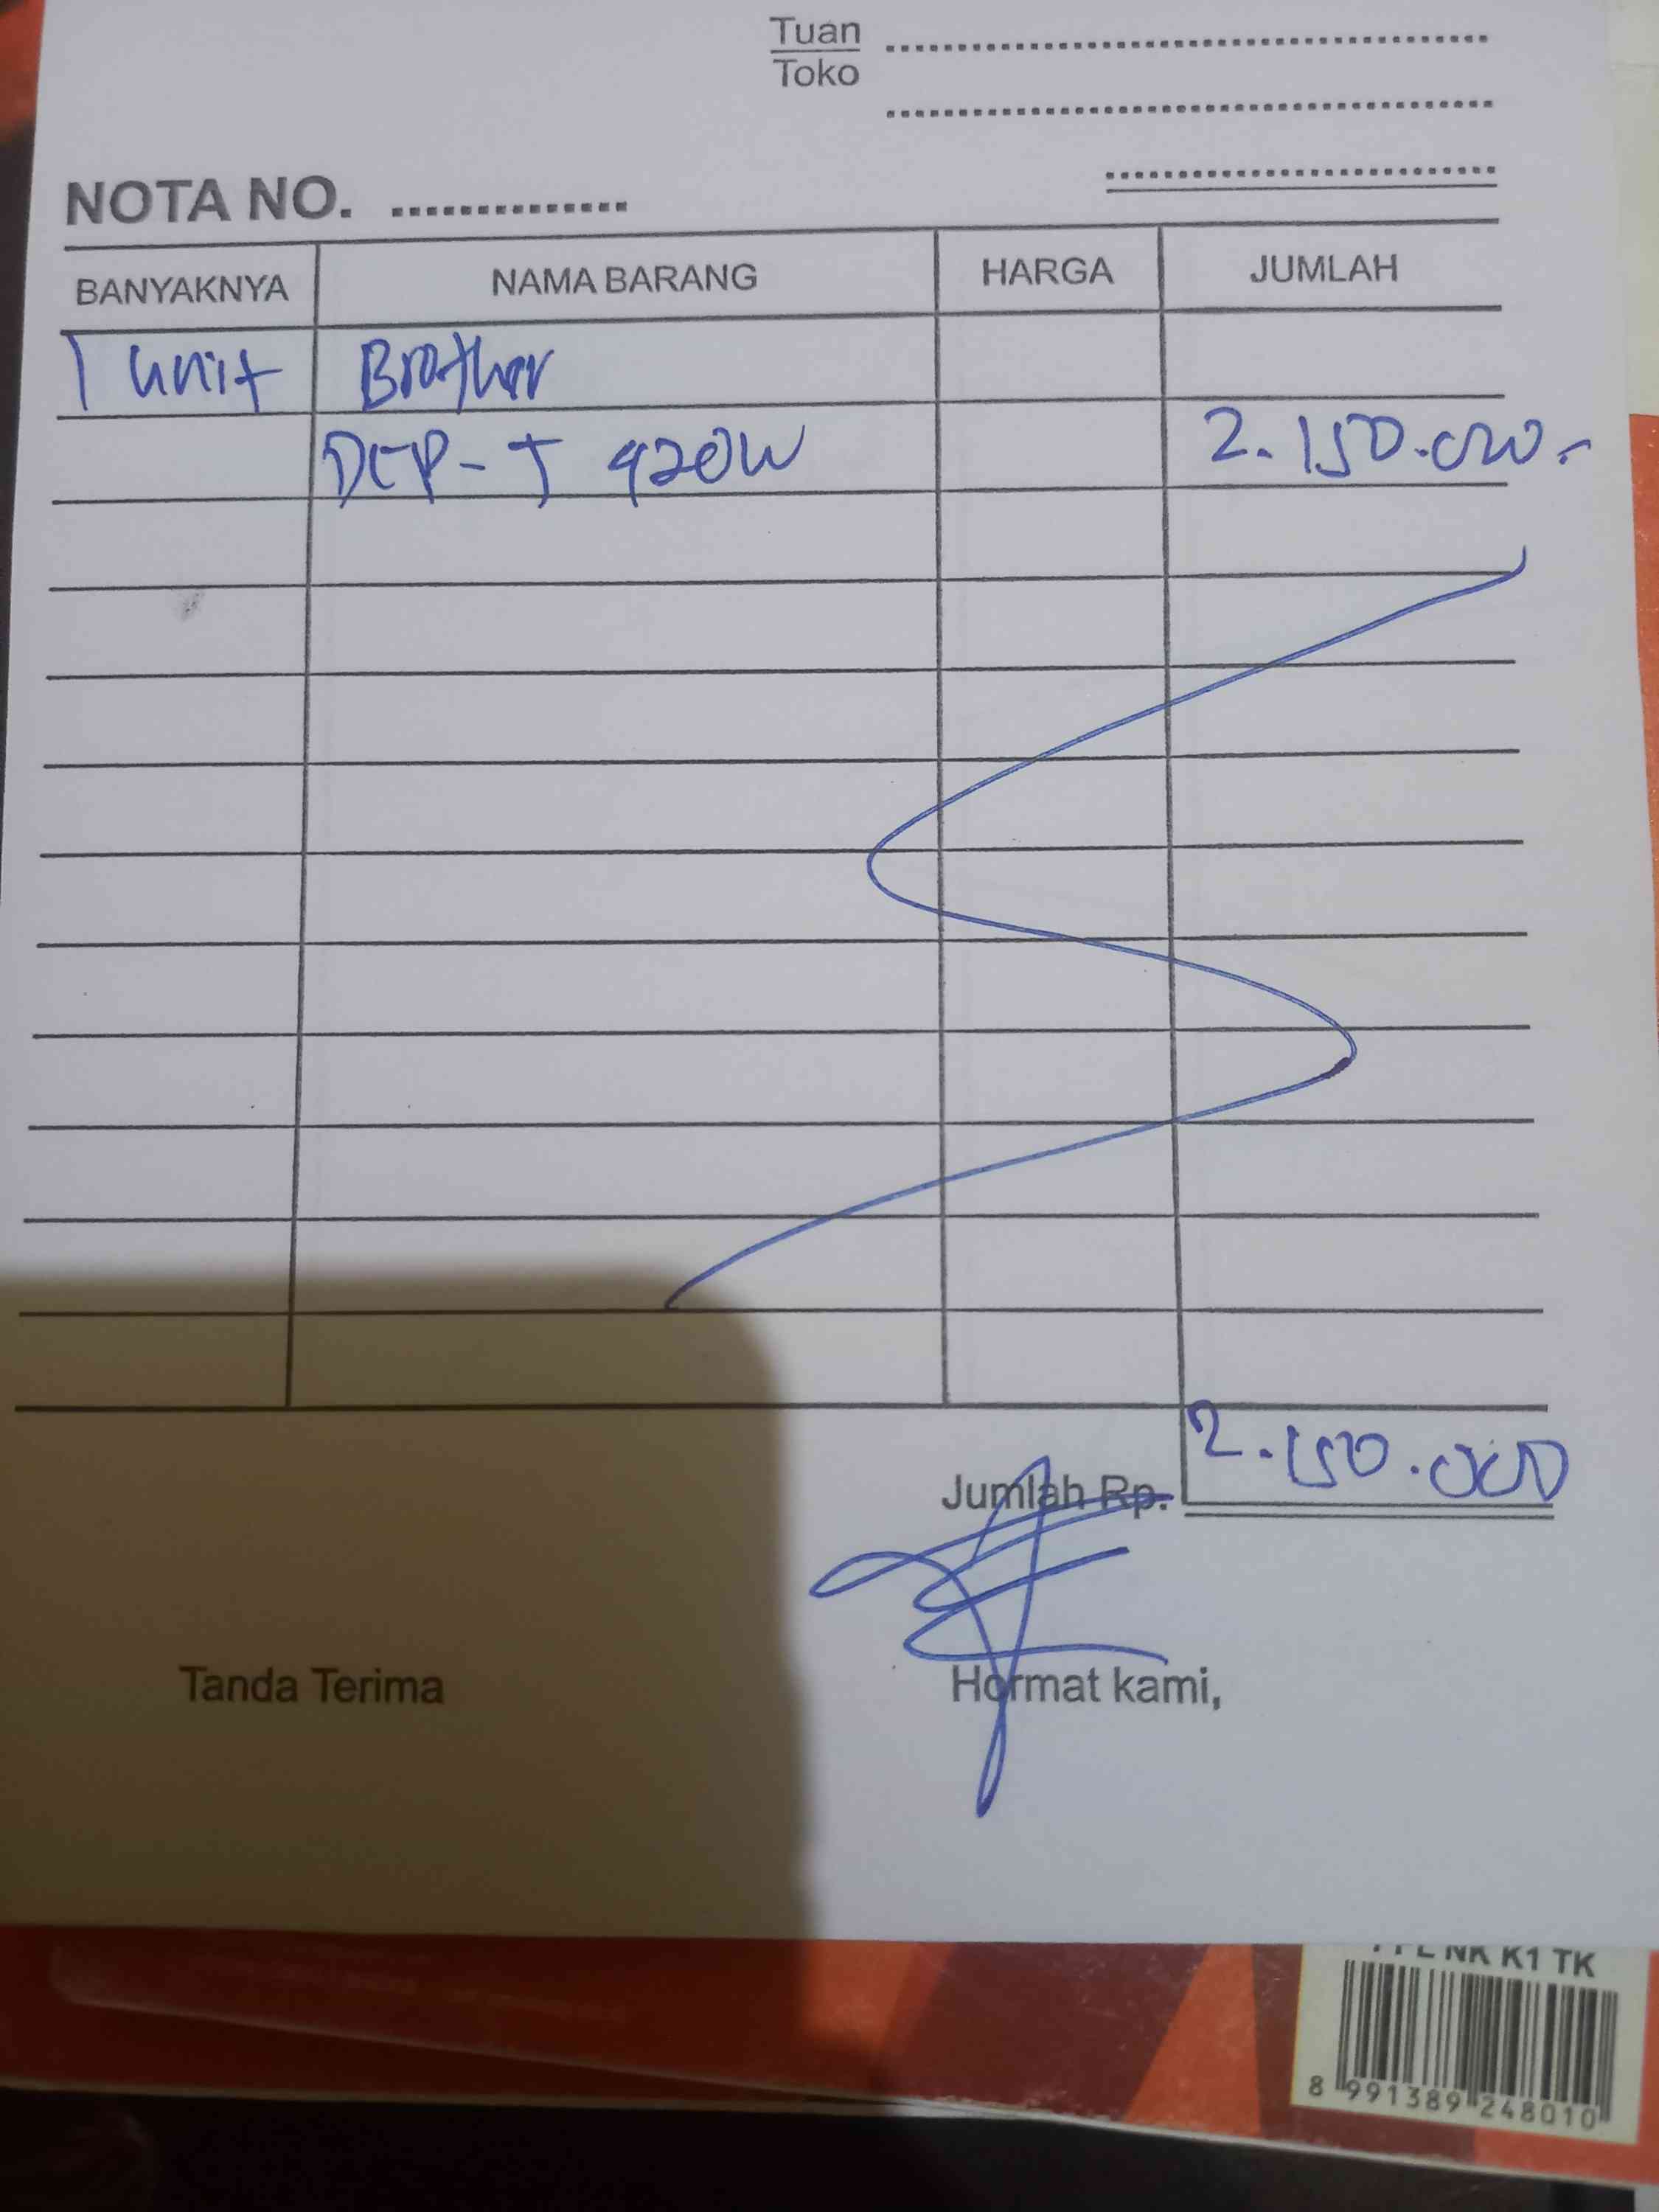 Tuan
Toko
NOTA NO.
BANYAKNYA NAMA BARANG HARGA JUMLAH
1 unit Brother
DCP-T 420W 2.150.000.-
Jumlah Rp. 2.150.000
Tanda Terima Hormat kami,
NK K1 TK
8 991389 248010